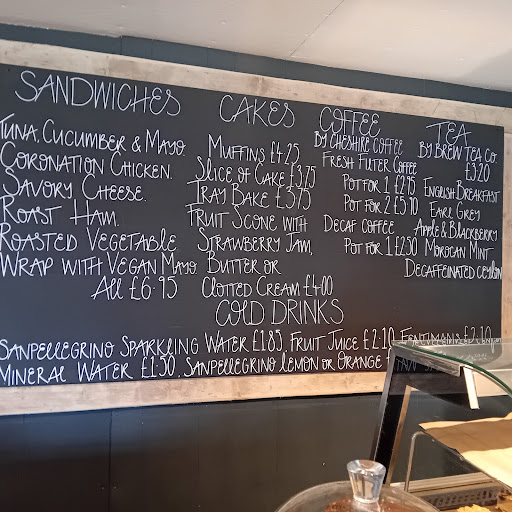 SANDWICHES
TUNA, CUCUMBER & MAYO.
CORONATION CHICKEN.
SAVORY CHEESE.
ROAST HAM.
ROASTED VEGETABLE
WRAP WITH VEGAN MAYO
All £6.95
CAKES
MUFFINS £4.25
SLICE OF CAKE £3.75
TRAY BAKE £3.75
FRUIT SCONE WITH
STRAWBERRY JAM,
BUTTER OR
CLOTTED CREAM £4.00
COFFEE
BY CHESHIRE COFFEE
FRESH FILTER COFFEE
POT FOR 1 £2.95
POT FOR 2 £5.10
DECAF COFFEE
POT FOR 1 £2.50
TEA
BY BREW TEA CO.
£3.20
ENGLISH BREAKFAST
EARL GREY
APPLE & BLACKBERRY
MOROCAN MINT
DECAFFEINATED CEYLON
COLD DRINKS
SANPELLEGRINO SPARKLING WATER £1.85, FRUIT JUICE £2.10, FENTIMANS £2.10,
MINERAL WATER £1.50, SANPELLEGRINO LEMON OR ORANGE